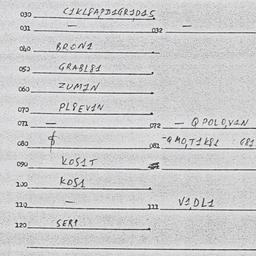 030 C1KL8APD1GR1D15
031 — 032 —
040 BRON1
050 GRABL81
060 ZUM1N
070 PL8EV1N
071 — 072 — QPOLO,V1N
080 081
090 KOS1T
100 KOS1
110 — 111 V1,DL1
120 SER1